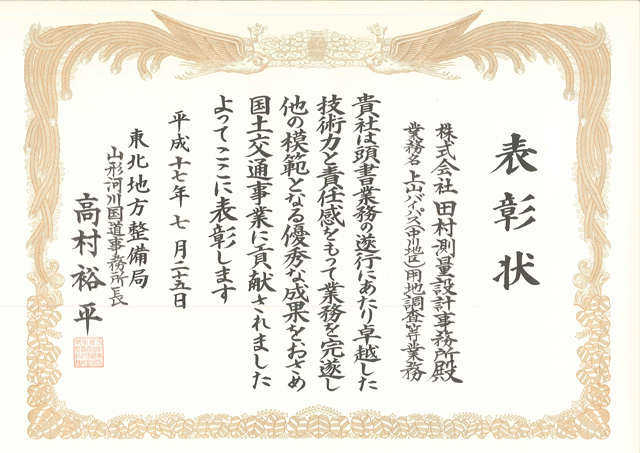 表彰状
株式会社 田村測量設計事務所殿
業務名 上山バイパス(中川地区)用地調査等業務
貴社は頭書業務の遂行にあたり卓越した
技術力と責任感をもって業務を完遂し
他の模範となる優秀な成果をおさめ
国土交通事業に貢献されました
よってここに表彰します
平成十七年 七月二十五日
東北地方整備局
山形河川国道事務所長
高村裕平